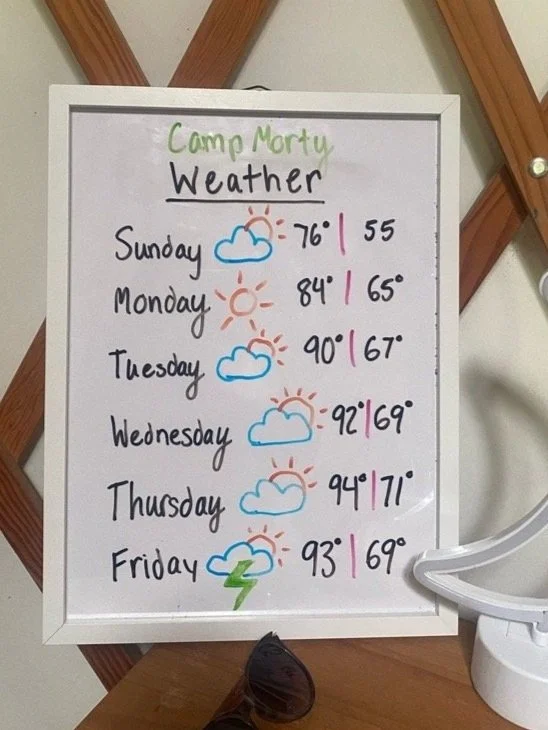 Camp Morty
Weather
Sunday 76° | 55
Monday 84° | 65°
Tuesday 90° | 67°
Wednesday 92° | 69°
Thursday 94° | 71°
Friday 93° | 69°